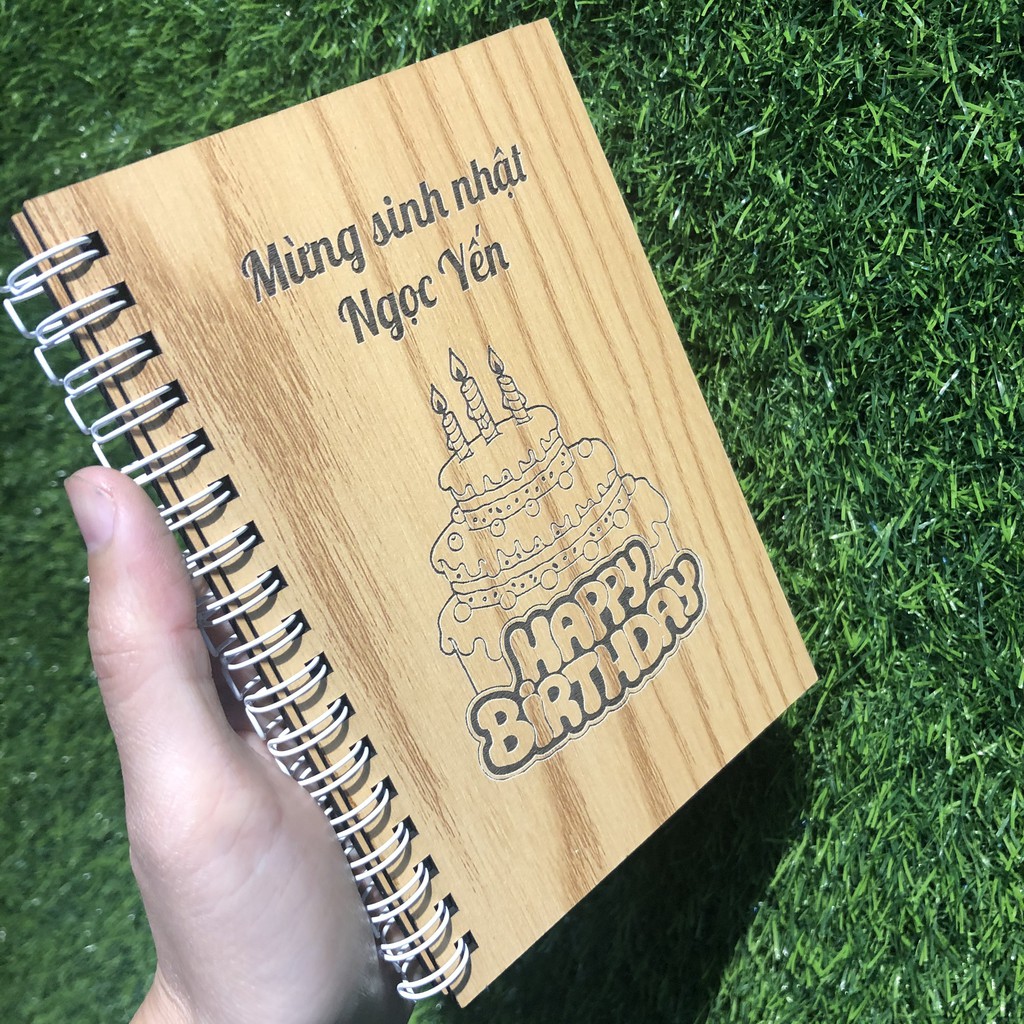 Mừng sinh nhật
Ngọc Yến
HAPPY
BiRTHDAY